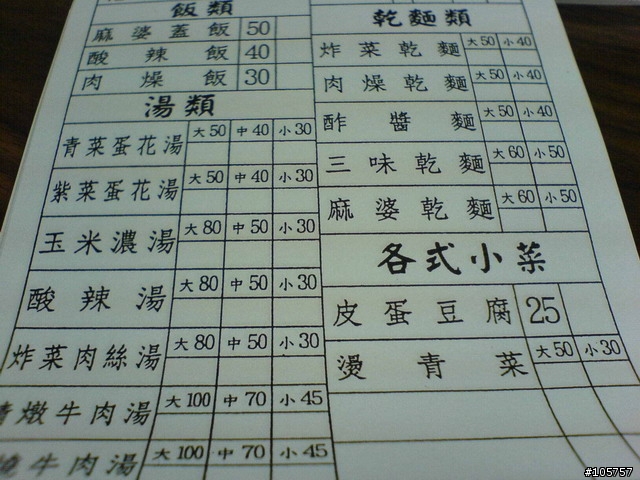 飯類
麻婆蓋飯 50
酸辣飯 40
肉燥飯 30
湯類
青菜蛋花湯 大50 中40 小30
紫菜蛋花湯 大50 中40 小30
玉米濃湯 大80 中50 小30
酸辣湯 大80 中50 小30
炸菜肉絲湯 大80 中50 小30
燉牛肉湯 大100 中70 小45
牛肉湯 大100 中70 小45
乾麵類
炸菜乾麵 大50 小40
肉燥乾麵 大50 小40
酢醬麵 大50 小40
三味乾麵 大60 小50
麻婆乾麵 大60 小50
各式小菜
皮蛋豆腐 25
燙青菜 大50 小30
#105757